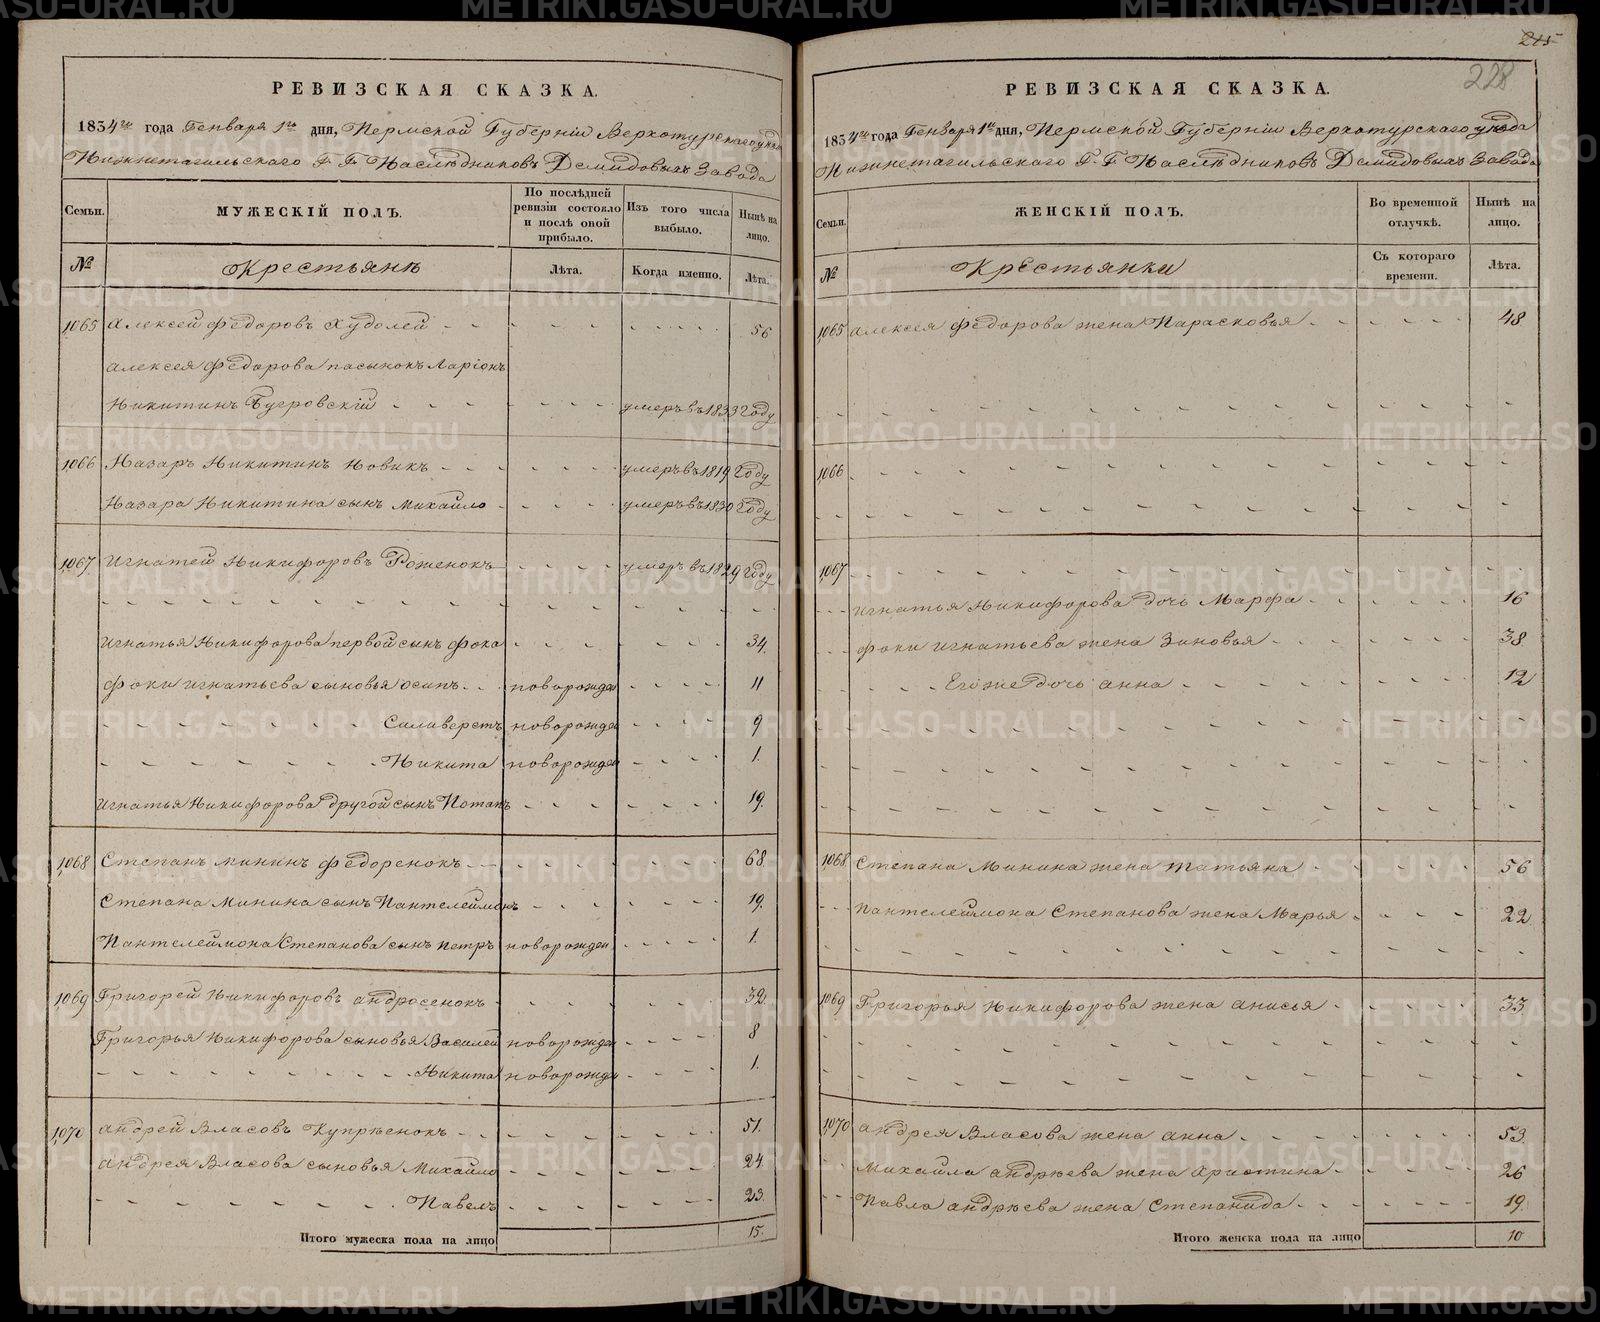 РЕВИЗСКАЯ СКАЗКА.
1834го года Генваря 1го дня, Пермской Губернiи Верхотурскаго уѣзда
Нижнетагильскаго Г. Г. Наслѣдниковъ Демидовыхъ Завода
Семьи.
МУЖЕСКIЙ ПОЛЪ.
По послѣдней ревизiи состояло и послѣ оной прибыло.
Изъ того числа выбыло.
Нынѣ на лицо.
№
Крестьянѣ
Лѣта.
Когда именно.
Лѣта.
1065 Алексей Федоровъ Худолей 56
Алексея Федорова пасынокъ Ларiонъ
Никитинъ Бугровскiй умеръ въ 1833 Году
1066 Назаръ Никитинъ Новикъ умеръ въ 1819 Году
Назара Никитина сынъ Михайло умеръ въ 1830 Году
1067 Игнатей Никифоровъ Роженокъ умеръ въ 1829 Году
Игнатья Никифорова первой сынъ Фока 34.
Фоки Игнатьева сыновья Осипъ новорожден 11
Силиверстъ новорожден 9
Никита новорожден 1.
Игнатья Никифорова другой сынъ Потапъ 19.
1068 Степанъ Мининъ Федоренокъ 68.
Степана Минина сынъ Пантелеймонъ 19.
Пантелеймона Степанова сынъ Петръ новорожден 1.
1069 Григорей Никифоровъ Андросенокъ 32.
Григорья Никифорова сыновья Василей новорожден 8
Никита новорожден 1.
1070 Андрей Власовъ Купрѣенокъ 51.
Андрея Власова сыновья Михайло 24.
Павелъ 23.
Итого мужеска пола на лицо 15.
215
228
РЕВИЗСКАЯ СКАЗКА.
1834го года Генваря 1го дня, Пермской Губернiи Верхотурскаго уѣзда
Нижнетагильскаго Г. Г. Наслѣдниковъ Демидовыхъ Завода
Семьи.
ЖЕНСКIЙ ПОЛЪ.
Во временной отлучкѣ.
Нынѣ на лицо.
№
Крестьянки
Съ котораго времени.
Лѣта.
1065 Алексея Федорова жена Парасковья 48
1066
1067
Игнатья Никифорова дочь Марфа 16
Фоки Игнатьева жена Зиновья 38
Его же дочь Анна 12
1068 Степана Минина жена Татьяна 56
Пантелеймона Степанова жена Марья 22
1069 Григорья Никифорова жена Анисья 33
1070 Андрея Власова жена Анна 53
Михайла Андрѣева жена Христина 26
Павла Андрѣева жена Степанида 19.
Итого женска пола на лицо 10
METRIKI.GASO-URAL.RU